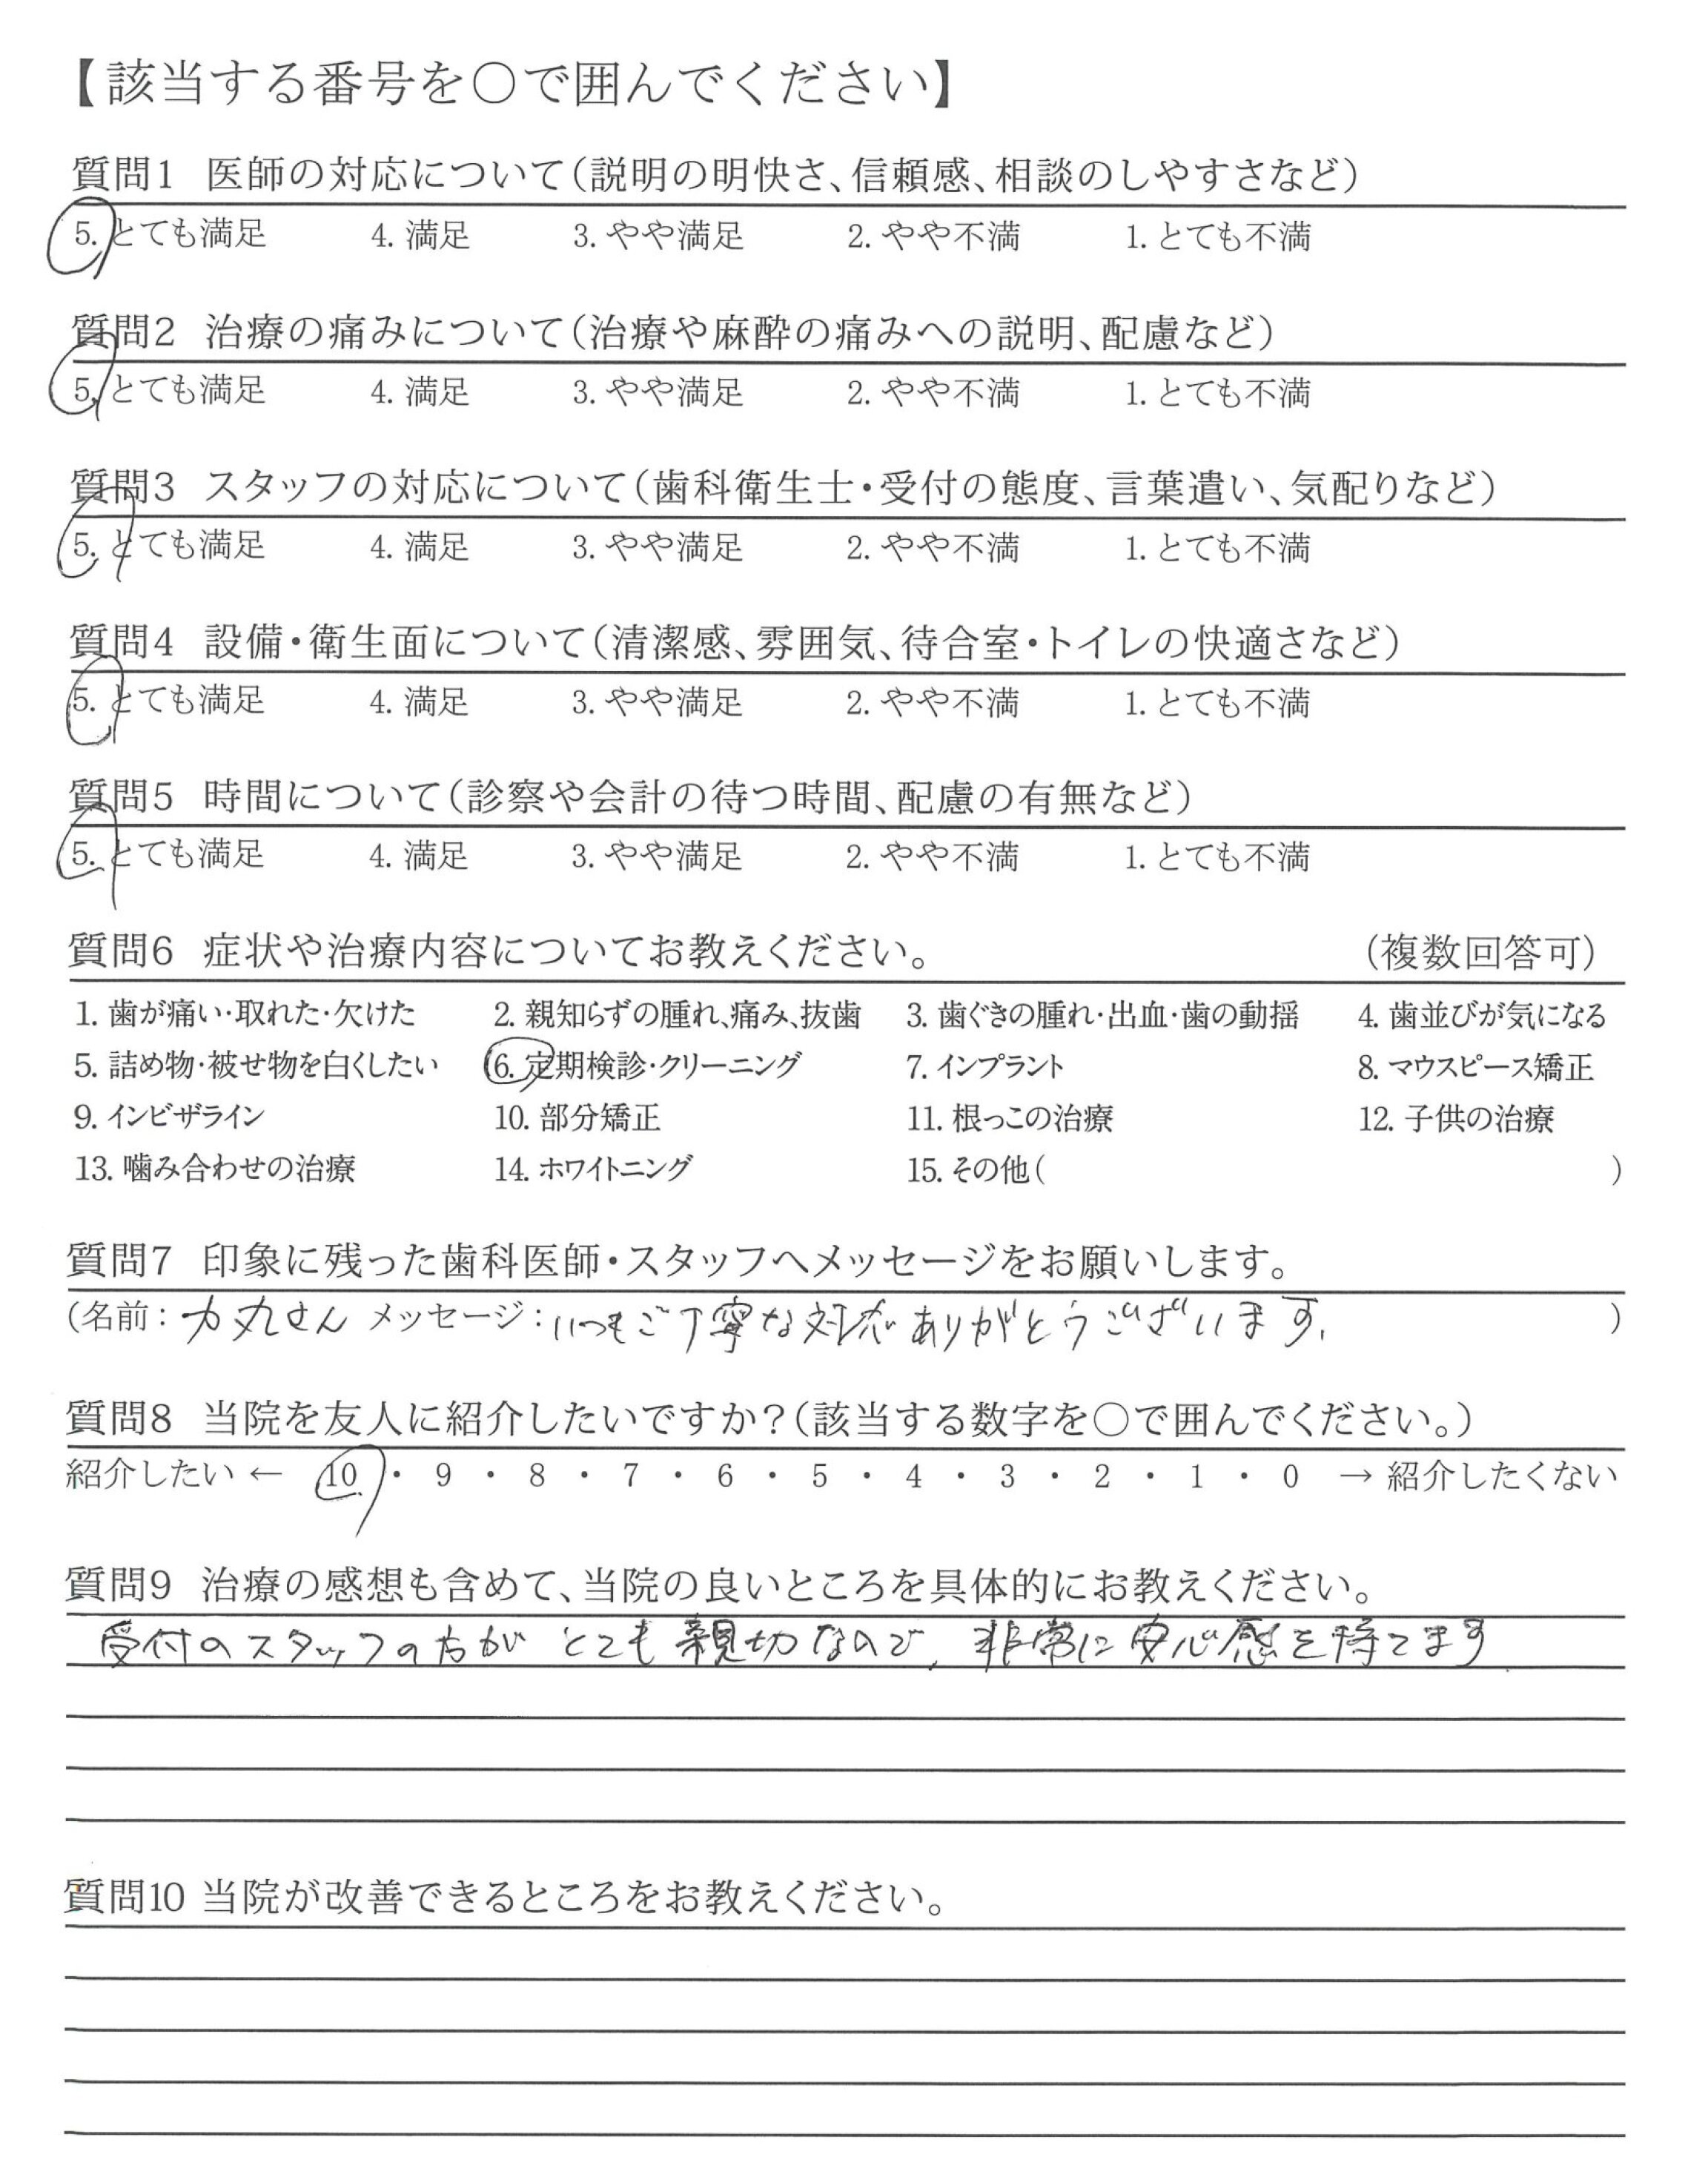 【該当する番号を○で囲んでください】
質問1 医師の対応について(説明の明快さ、信頼感、相談のしやすさなど)
5. とても満足 4. 満足 3. やや満足 2. やや不満 1. とても不満
質問2 治療の痛みについて(治療や麻酔の痛みへの説明、配慮など)
5. とても満足 4. 満足 3. やや満足 2. やや不満 1. とても不満
質問3 スタッフの対応について(歯科衛生士・受付の態度、言葉遣い、気配りなど)
5. とても満足 4. 満足 3. やや満足 2. やや不満 1. とても不満
質問4 設備・衛生面について(清潔感、雰囲気、待合室・トイレの快適さなど)
5. とても満足 4. 満足 3. やや満足 2. やや不満 1. とても不満
質問5 時間について(診察や会計の待つ時間、配慮の有無など)
5. とても満足 4. 満足 3. やや満足 2. やや不満 1. とても不満
質問6 症状や治療内容についてお教えください。 (複数回答可)
1. 歯が痛い・取れた・欠けた 2. 親知らずの腫れ、痛み、抜歯 3. 歯ぐきの腫れ・出血・歯の動揺 4. 歯並びが気になる
5. 詰め物・被せ物を白くしたい 6. 定期検診・クリーニング 7. インプラント 8. マウスピース矯正
9. インビザライン 10. 部分矯正 11. 根っこの治療 12. 子供の治療
13. 噛み合わせの治療 14. ホワイトニング 15. その他( )
質問7 印象に残った歯科医師・スタッフへメッセージをお願いします。
(名前: 力丸さん メッセージ: いつもご丁寧な対応ありがとうございます。 )
質問8 当院を友人に紹介したいですか?(該当する数字を○で囲んでください。)
紹介したい ← 10 ・ 9 ・ 8 ・ 7 ・ 6 ・ 5 ・ 4 ・ 3 ・ 2 ・ 1 ・ 0 → 紹介したくない
質問9 治療の感想も含めて、当院の良いところを具体的にお教えください。
受付のスタッフの方がとても親切なので、非常に安心感を持てます
質問10 当院が改善できるところをお教えください。